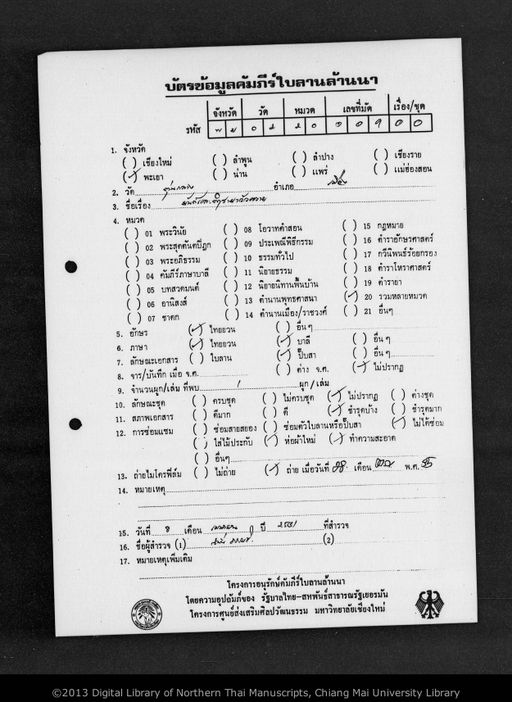 บัตรข้อมูลคัมภีร์ใบลานล้านนา
จังหวัด วัด หมวด เลขที่มัด เรื่อง/ชุด
รหัส
1. จังหวัด
( ) เชียงใหม่ ( ) ลำพูน ( ) ลำปาง ( ) เชียงราย
(✓) พะเยา ( ) น่าน ( ) แพร่ ( ) แม่ฮ่องสอน
2. วัด อำเภอ
3. ชื่อเรื่อง
4. หมวด
( ) 01 พระวินัย ( ) 08 โอวาทคำสอน ( ) 15 กฎหมาย
( ) 02 พระสุตตันตปิฎก ( ) 09 ประเพณีพิธีกรรม ( ) 16 ตำราอักษรศาสตร์
( ) 03 พระอภิธรรม ( ) 10 ธรรมทั่วไป ( ) 17 กวีนิพนธ์ร้อยกรอง
( ) 04 คัมภีร์ภาษาบาลี ( ) 11 นิยายธรรม ( ) 18 ตำราโหราศาสตร์
( ) 05 บทสวดมนต์ ( ) 12 นิยายนิทานพื้นบ้าน ( ) 19 ตำรายา
( ) 06 อานิสงส์ ( ) 13 ตำนานพุทธศาสนา (✓) 20 รวมหลายหมวด
( ) 07 ชาดก ( ) 14 ตำนานเมือง/ราชวงศ์ ( ) 21 อื่นๆ
5. อักษร (✓) ไทยยวน ( ) อื่นๆ
6. ภาษา (✓) ไทยยวน (✓) บาลี ( ) อื่นๆ
7. ลักษณะเอกสาร ( ) ใบลาน (✓) ปั๊บสา ( ) อื่นๆ
8. จาร/บันทึก เมื่อ จ.ศ. ( ) ต่าง จ.ศ. (✓) ไม่ปรากฏ
9. จำนวนผูก/เล่ม ที่พบ 1 ผูก/เล่ม
10. ลักษณะชุด ( ) ครบชุด ( ) ไม่ครบชุด (✓) ไม่ปรากฏ ( ) ต่างชุด
11. สภาพเอกสาร ( ) ดีมาก ( ) ดี (✓) ชำรุดบ้าง ( ) ชำรุดมาก
12. การซ่อมแซม ( ) ซ่อมสายสยอง ( ) ซ่อมตัวใบลานหรือปั๊บสา (✓) ไม่ได้ซ่อม
( ) ใส่ไม้ประกับ (✓) ห่อผ้าใหม่ (✓) ทำความสะอาด
( ) อื่นๆ
13. ถ่ายไมโครฟิล์ม ( ) ไม่ถ่าย (✓) ถ่าย เมื่อวันที่ เดือน พ.ศ.
14. หมายเหตุ
15. วันที่ เดือน ปี ที่สำรวจ
16. ชื่อผู้สำรวจ (1) (2)
17. หมายเหตุเพิ่มเติม
โครงการอนุรักษ์คัมภีร์ใบลานล้านนา
โดยความอุปถัมภ์ของ รัฐบาลไทย-สหพันธ์สาธารณรัฐเยอรมัน
โครงการศูนย์ส่งเสริมศิลปวัฒนธรรม มหาวิทยาลัยเชียงใหม่
©2013 Digital Library of Northern Thai Manuscripts, Chiang Mai University Library